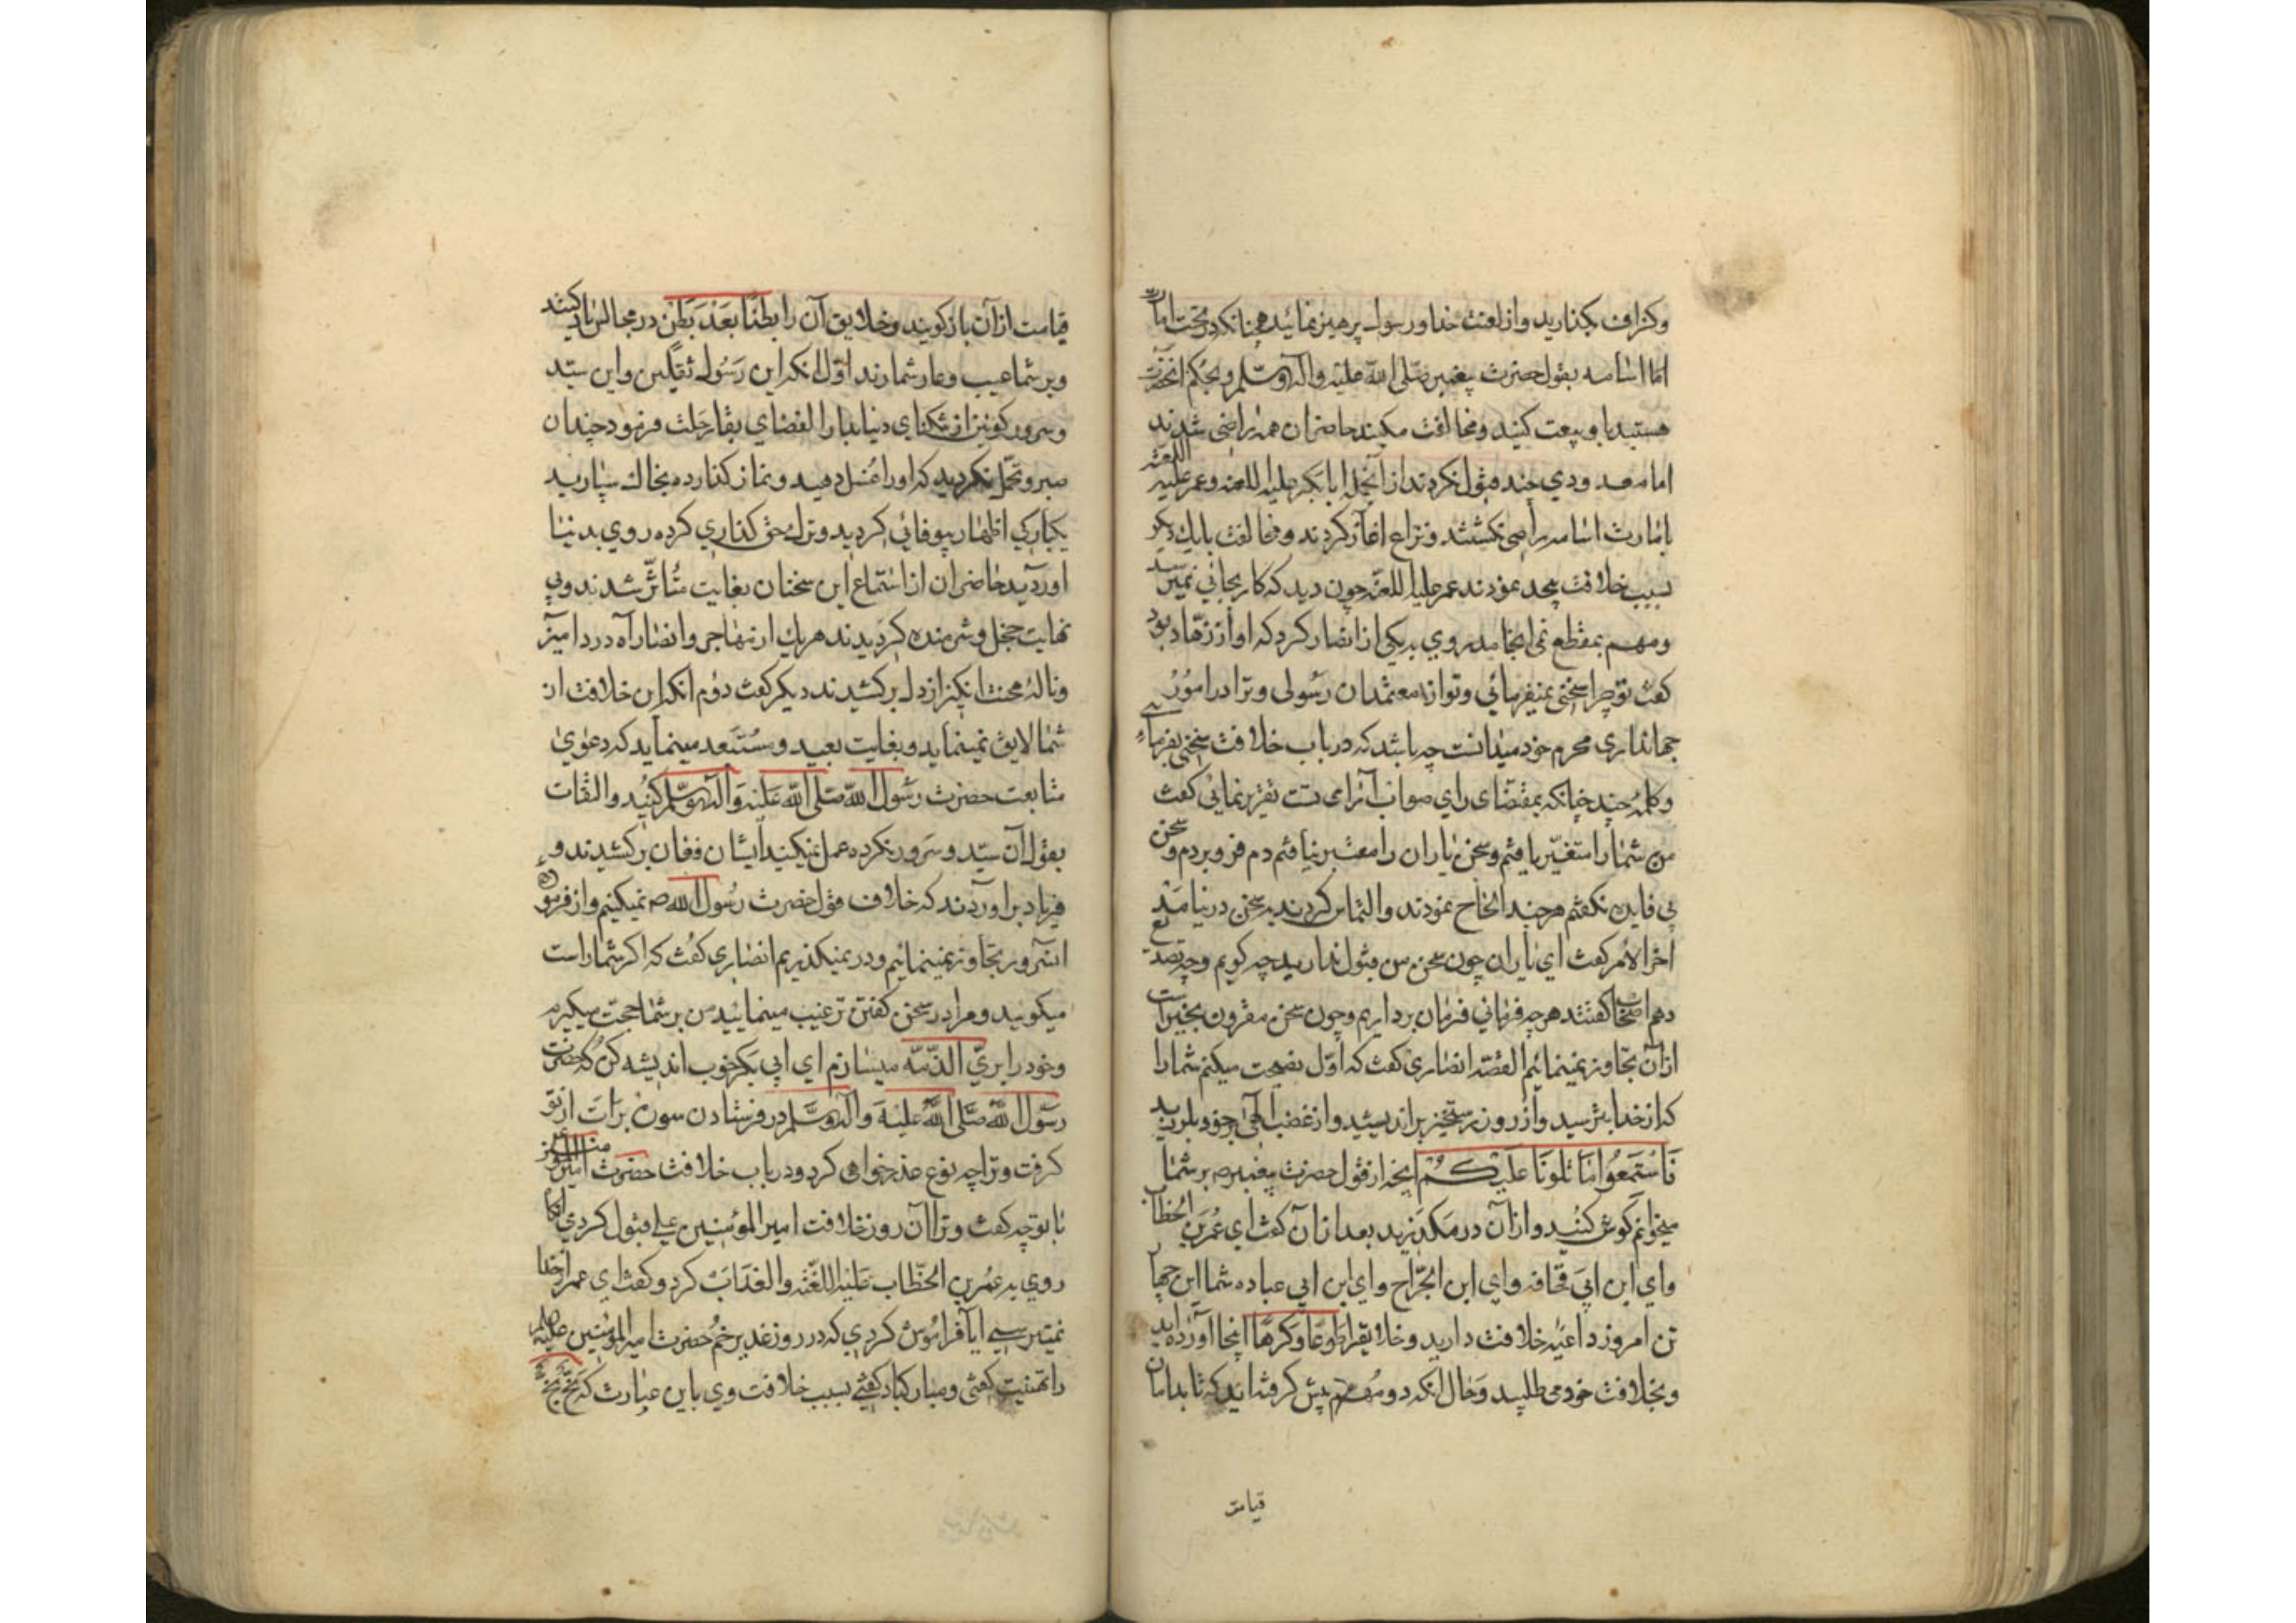 وکزاف بکذارید واز لعنت خدا ورسول پرهیز نمائید همچنانکه در تحت امارت
اما اسامه بقول حضرت پیغمبر صلی الله علیه وآله وسلم وبحکم آنحضرت
هستید با وبیعت کنید ومخالفت مکنید حاضران همه راضی شدند
اما معدودی چند قبول نکردند از آنجمله ابابکر علیه اللعنه وعمر علیه اللعنه
بامارت اسامه راضی نکشتند ونزاع اغاز کردند ومخالفت بایك دیکر
بسبب خلافت بیحد نمودند عمر علیه اللعنه چون دید که کار بجائی نمیرسد
ومهم بمقطع نمی انجامد روی به یکی از انصار کرد که او از زهاد بود
کفت تو چرا سخنی نمیفرمائی وتو از معتمدان رسولی وترا در امور
جهانداری محرم خود میدانست چه باشد که در باب خلافت سخنی بفرمائی
وکلمهٔ چند چنانکه بمقتضای رای صواب آرای تست تقریر نمائی کفت
من شما را متغیر یافتم وسخن یاران را معتبر نیافتم دم فرو بردم وسخن
بی فایده نکفتم هرچند الحاح نمودند والتماس کردند بسخن در نیامد
آخر الامر کفت ای یاران چون سخن من قبول ندارید چه کویم وچه تصدیع
دهم اصحاب کفتند هرچه فرمائی فرمان برداریم وچون سخن مقرون بخیر است
از آن تجاوز نمینمائیم القصه انصاری کفت که اول نصیحت میکنم شما را
که از خدا بترسید واز روز رستخیز براندیشید واز غضب الهی برخود بلرزید
فاستمعوا ما تلونا علیکم آنچه از قول حضرت پیغمبر ص بر شما
میخوانم کوش کنید واز آن در مکذرید بعد از آن کفت ای عمر بن الخطاب
وای ابن ابی قحافه وای ابن الجراح وای ابن ابی عباده شما این چهار
تن امروز داعیهٔ خلافت دارید وخلایق را طوعا وکرها اینجا آورده اید
وبخلافت خود می طلبید وحال آنکه دو مهم پیش کرفته اید که تا بدامان
قیامت
قیامت از آن باز کویند وخلایق آن را بطنا بعد بطن در مجالس یاد کنند
وبر شما عیب وعار شمارند اول آنکه این رسول ثقلین واین سید
وسرور کونین از تنکنای دنیا بدار الفضای بقا رحلت فرمود چندان
صبر وتحمل نکردید که اورا غسل دهید ونماز کذارده بخاك سپارید
یکبارکی اظهار بیوفائی کردید وترك حق کذاری کرده روی بدنیا
اوردید حاضران از استماع این سخنان بغایت متأثر شدند وبی
نهایت خجل وشرمنده کردیدند هریك از مهاجر وانصار آه درد آمیز
ونالهٔ محنت انکیز از دل برکشیدند دیکر کفت دوم آنکه این خلافت از
شما لایق نمینماید وبغایت بعید ومستبعد مینماید که دعوی
متابعت حضرت رسول الله صلی الله علیه وآله وسلم کنید والتفات
بقول آن سید وسرور نکرده عمل نمیکنید ایشان فغان برکشیدند و
فریاد براوردند که خلاف قول حضرت رسول الله ص نمیکنیم واز فرمودهٔ
آنسرور تجاوز نمینمائیم ودر نمیکذریم انصاری کفت که اکر شما راست
میکویید ومرا در سخن کفتن ترغیب مینمایید من بر شما حجت میکیرم
وخود را بری الذمه میسازم ای ابی بکر خوب اندیشه کن که حضرت
رسول الله صلی الله علیه وآله وسلم در فرستادن سورهٔ برات از تو
کرفت وترا چه نوع عذر خواهی کرد ودر باب خلافت حضرت امیر المؤمنین
با تو چه کفت وترا آن روز خلافت امیر المؤمنین علی قبول کردی
روی به عمر بن الخطاب علیه اللعنه والعذاب کرد وکفت ای عمر از خدا
نمیترسی آیا فراموش کردی که در روز غدیر خم حضرت امیر المؤمنین علیه
را تهنیت کفتی ومبارکباد کفتی بسبب خلافت وی باین عبارت که بخ بخ